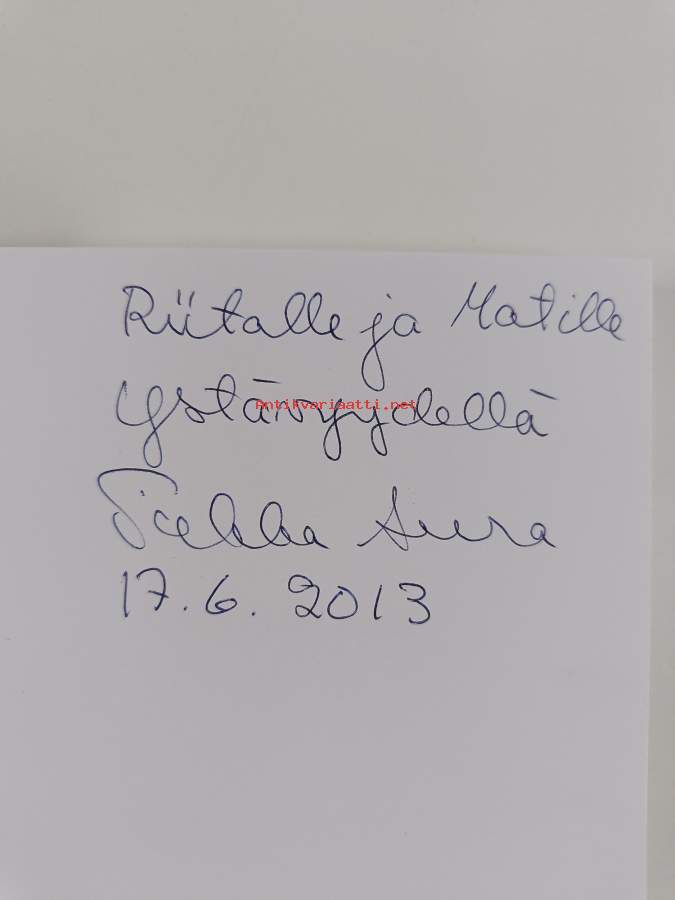 Riitalle ja Matille
Ystävyydellä
Antikvariaatti.net
Pekka Aura
17.6.2013